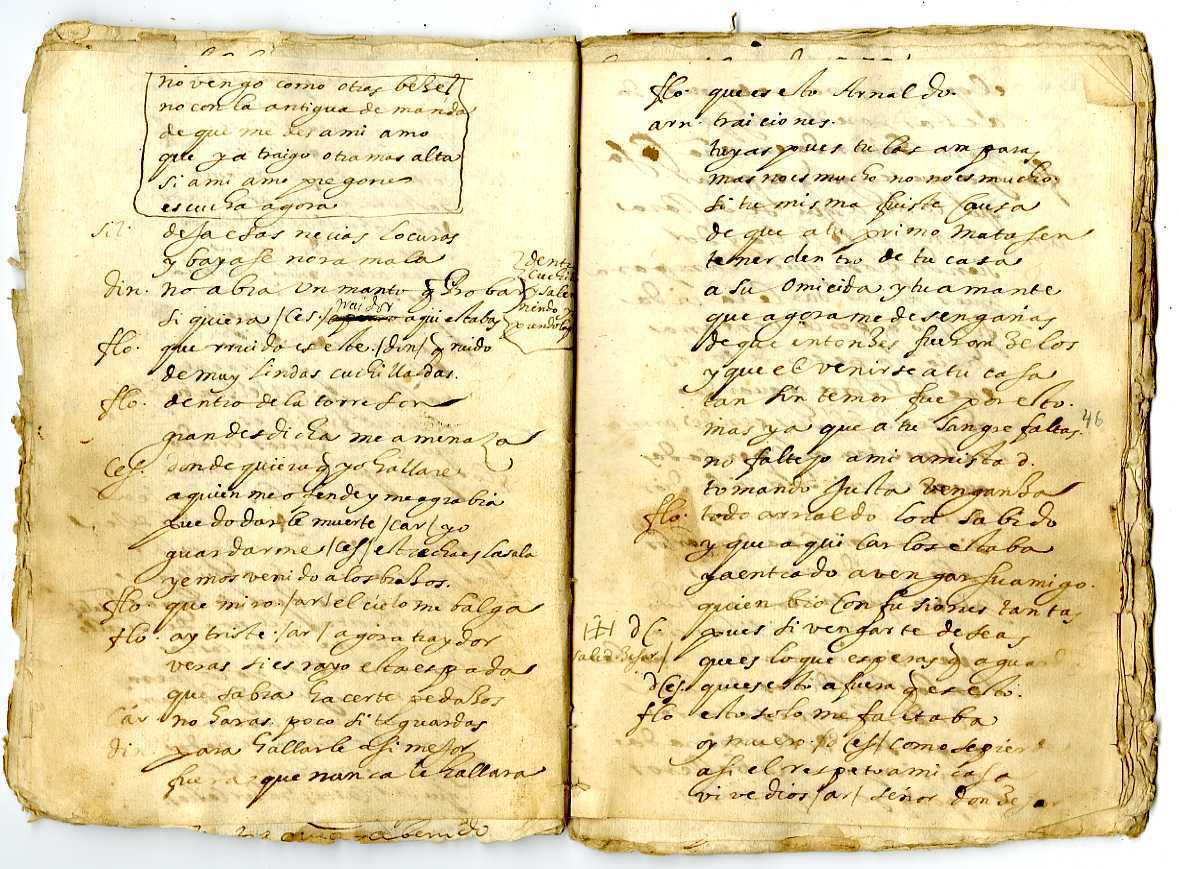 no vengo como otras bezes
no con la antigua demanda
de que me des a mi amo
que ya traigo otra mas alta
si a mi amo
escucha agora
sil. desa esas necias locuras
y bayase nora mala
din. no abia un manto q
si quiera /ces:/ traidor aqui estabas
flo. que rruido es este. /din/ q ruido
de muy lindas cuchilladas.
flo. dentro de la torre son
gran desdicha me amenaza
Ces. donde quiera q yo hallare
a quien me ofende y me agrabia
puedo darle muerte /car/ yo
guardarme /ces/ estrecha es la sala
y emos venido a los brasos.
flo. que miro. /ar/ el cielo me balga
flo. ay triste. /ar/ agora traydor
veras si es rayo esta espada
que sabra hacerte pedasos
Car no haras poco si te guardas
din. para hallarle asi mejor
fuera que nunca le hallara
flo. que es esto Arnaldo.
arn. traiciones.
tuyas pues tu las amparas
mas no es mucho no no es mucho.
si tu misma fuiste causa
de que a tu primo matasen
tener dentro de tu casa
a su omicida y tu amante
que agora me desengañas
de que entonzes fueron zelos
y que el venirse a tu casa
tan sin temor fue por esto.
mas ya que a tu sangre faltas.
46
no falte yo a mi amistad.
tomando justa venganza
flo. todo arnaldo lo a sabido
y que aqui Carlos estaba
ya entrado a vengar su amigo.
quien bio confusiones tantas
pues si vengarte deseas
que es lo que esperas y aguard
dCes. que es esto a fuera q es esto.
flo esto solo me faltaba
oy muero. ces/ como se pierde
asi el respeto a mi casa
vive dios /ar/ señor don Zesar